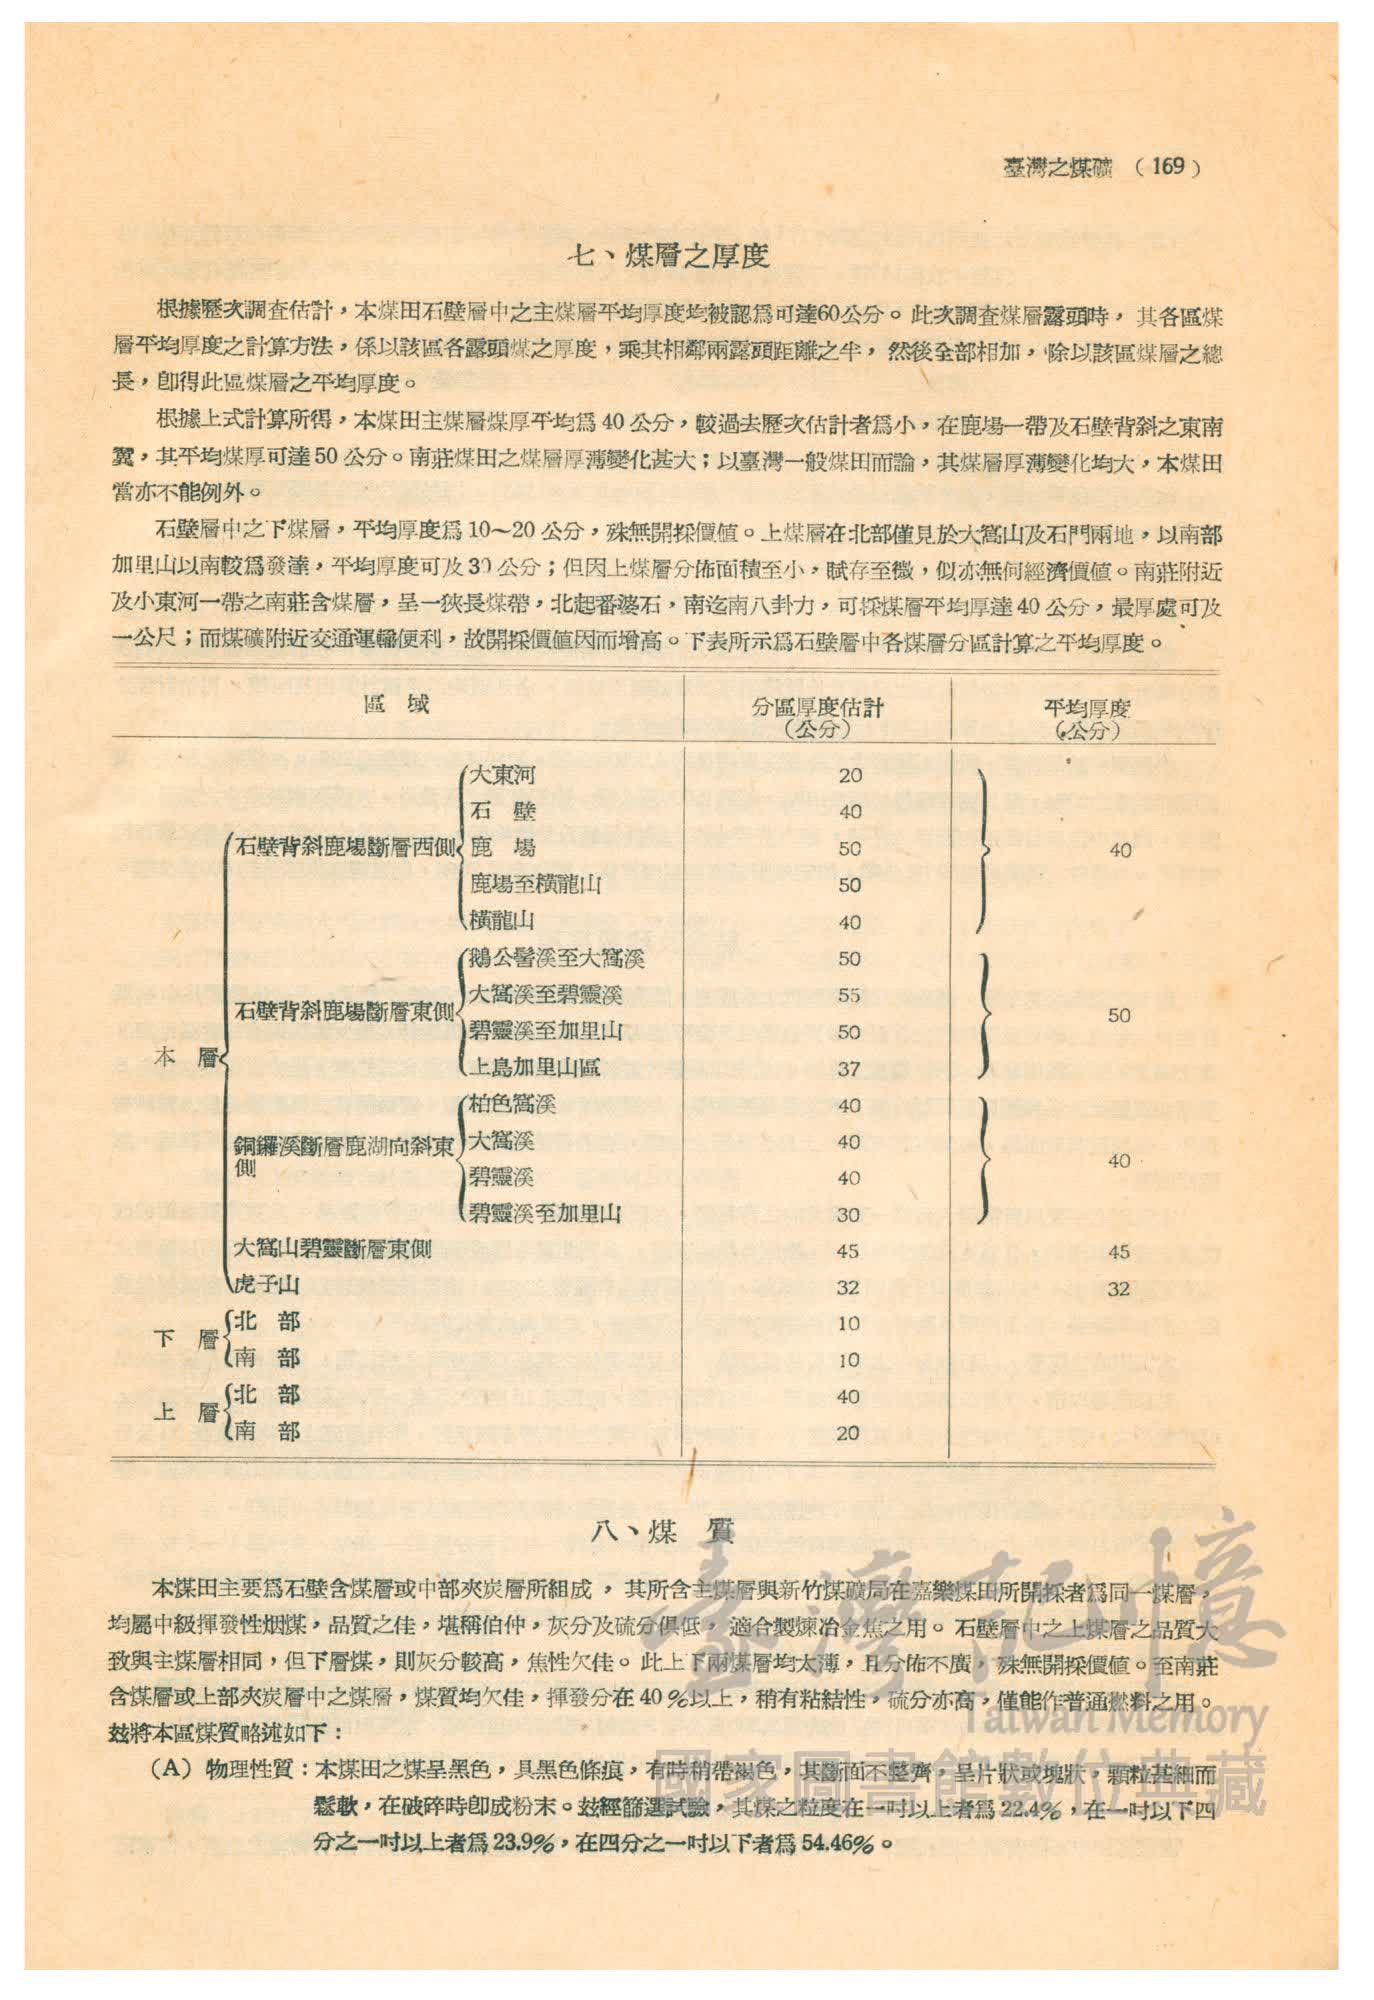 臺灣之煤礦 （169）
七、煤層之厚度
根據歷次調查估計，本煤田石壁層中之主煤層平均厚度均被認爲可達60公分。此次調查煤層露頭時，其各區煤
層平均厚度之計算方法，係以該區各露頭煤之厚度，乘其相鄰兩露頭距離之半，然後全部相加，除以該區煤層之總
長，卽得此區煤層之平均厚度。
根據上式計算所得，本煤田主煤層煤厚平均爲40公分，較過去歷次估計者爲小，在鹿場一帶及石壁背斜之東南
翼，其平均煤厚可達50公分。南莊煤田之煤層厚薄變化甚大；以臺灣一般煤田而論，其煤層厚薄變化均大，本煤田
當亦不能例外。
石壁層中之下煤層，平均厚度爲10～20公分，殊無開採價値。上煤層在北部僅見於大窩山及石門兩地，以南部
加里山以南較爲發達，平均厚度可及30公分；但因上煤層分佈面積至小，賦存至微，似亦無何經濟價値。南莊附近
及小東河一帶之南莊含煤層，呈一狹長煤帶，北起番婆石，南迄南八卦力，可採煤層平均厚達40公分，最厚處可及
一公尺；而煤礦附近交通運輸便利，故開採價値因而增高。下表所示爲石壁層中各煤層分區計算之平均厚度。
區 域 分區厚度估計（公分） 平均厚度（公分）
大東河 20
石 壁 40
石壁背斜鹿場斷層西側 鹿 場 50 40
鹿場至橫龍山 50
橫龍山 40
鵝公髻溪至大窩溪 50
大窩溪至碧靈溪 55
石壁背斜鹿場斷層東側 50
碧靈溪至加里山 50
本 層
上島加里山區 37
柏色窩溪 40
銅鑼溪斷層鹿湖向斜東側 大窩溪 40 40
碧靈溪 40
碧靈溪至加里山 30
大窩山碧靈斷層東側 45 45
虎子山 32 32
下 層 北 部 10
南 部 10
上 層 北 部 40
南 部 20
八、煤 質
本煤田主要爲石壁含煤層或中部夾炭層所組成，其所含主煤層與新竹煤礦局在嘉樂煤田所開採者爲同一煤層，
均屬中級揮發性烟煤，品質之佳，堪稱伯仲，灰分及硫分俱低，適合製煉冶金焦之用。石壁層中之上煤層之品質大
致與主煤層相同，但下層煤，則灰分較高，焦性欠佳。此上下兩煤層均太薄，且分佈不廣，殊無開採價値。至南莊
含煤層或上部夾炭層中之煤層，煤質均欠佳，揮發分在40％以上，稍有粘結性，硫分亦高，僅能作普通燃料之用。
玆將本區煤質略述如下：
（A）物理性質：本煤田之煤呈黑色，具黑色條痕，有時稍帶褐色，其斷面不整齊，呈片狀或塊狀，顆粒甚細而
鬆軟，在破碎時卽成粉末。玆經篩選試驗，其煤之粒度在一吋以上者爲22.4%，在一吋以下四
分之一吋以上者爲23.9%，在四分之一吋以下者爲54.46%。
臺灣記憶
Taiwan Memory
國家圖書館數位典藏